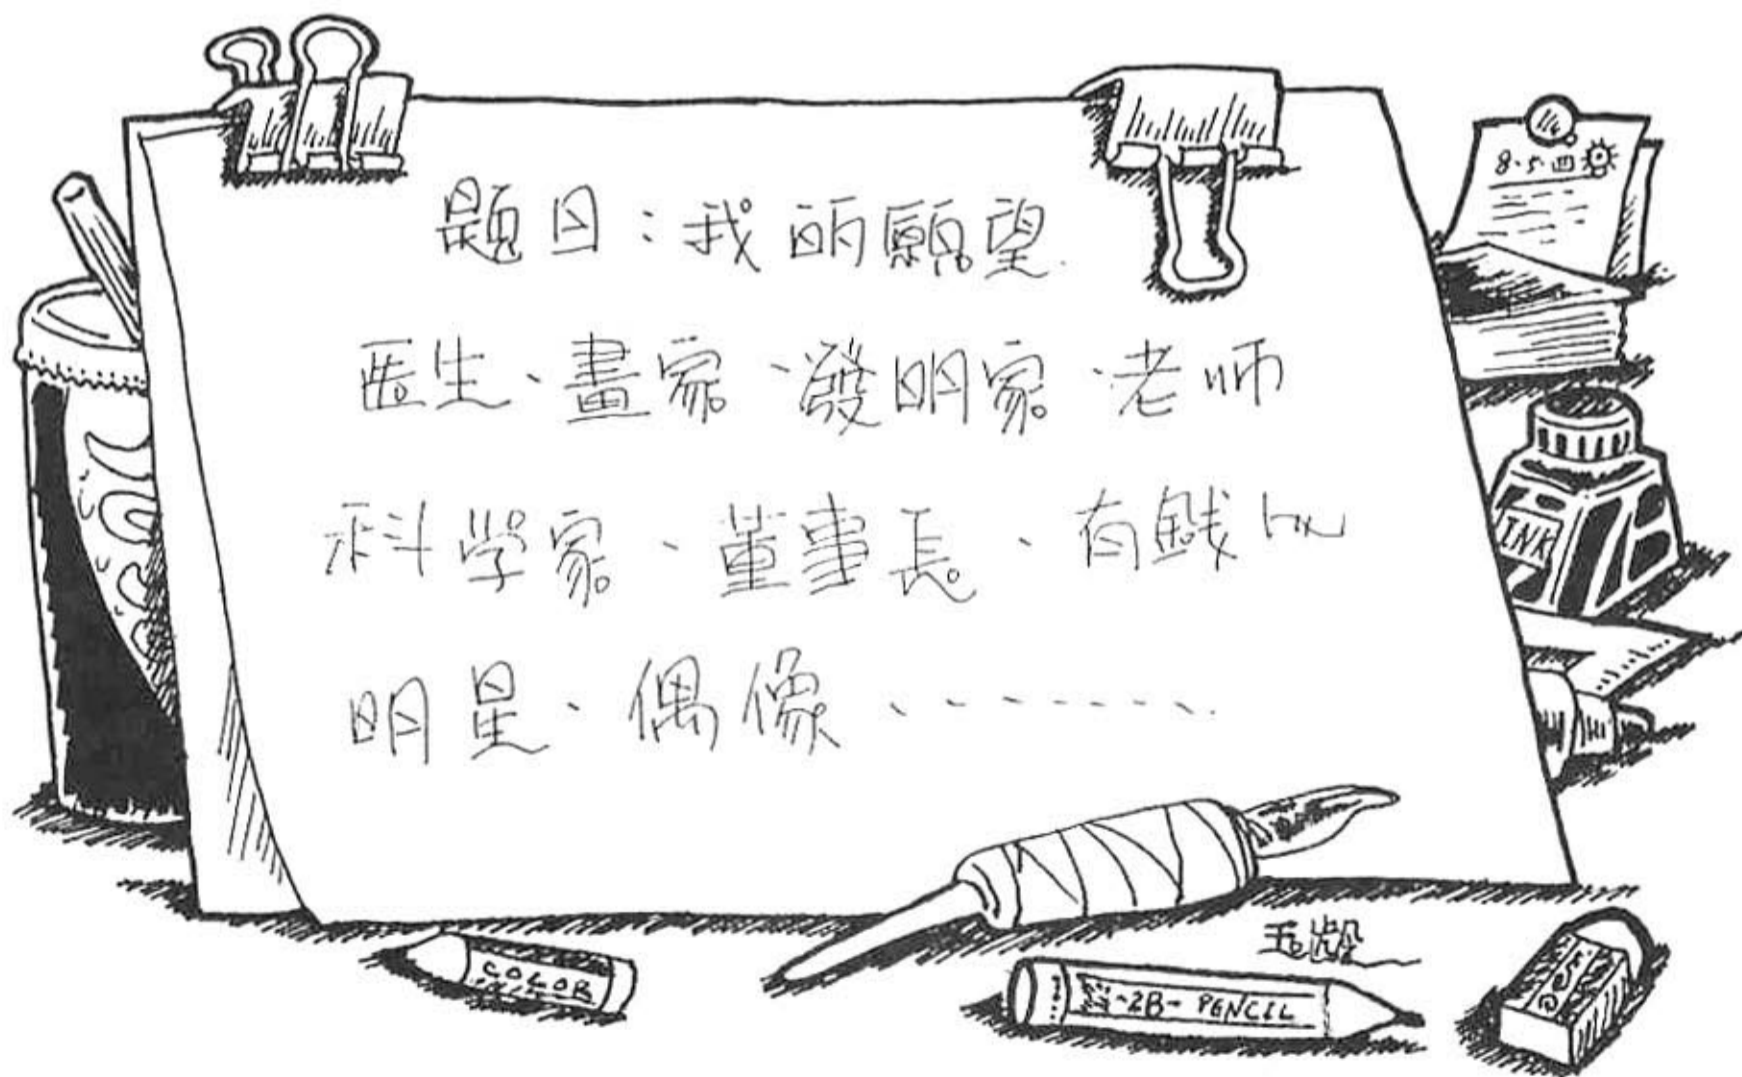 題目：我的願望
医生、畫家、發明家、老师
科学家、董事長、有錢人
明星、偶像、、、、、、、、
8.5.四
INK
COLOR
-2B- PENCIL